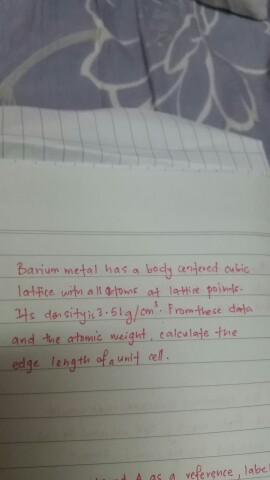 Barium metal has a body centered cubic
lattice with all atoms at lattice points.
Its density is 3.51g/cm³. From these data
and the atomic weight, calculate the
edge length of a unit cell.
A as a reference, label